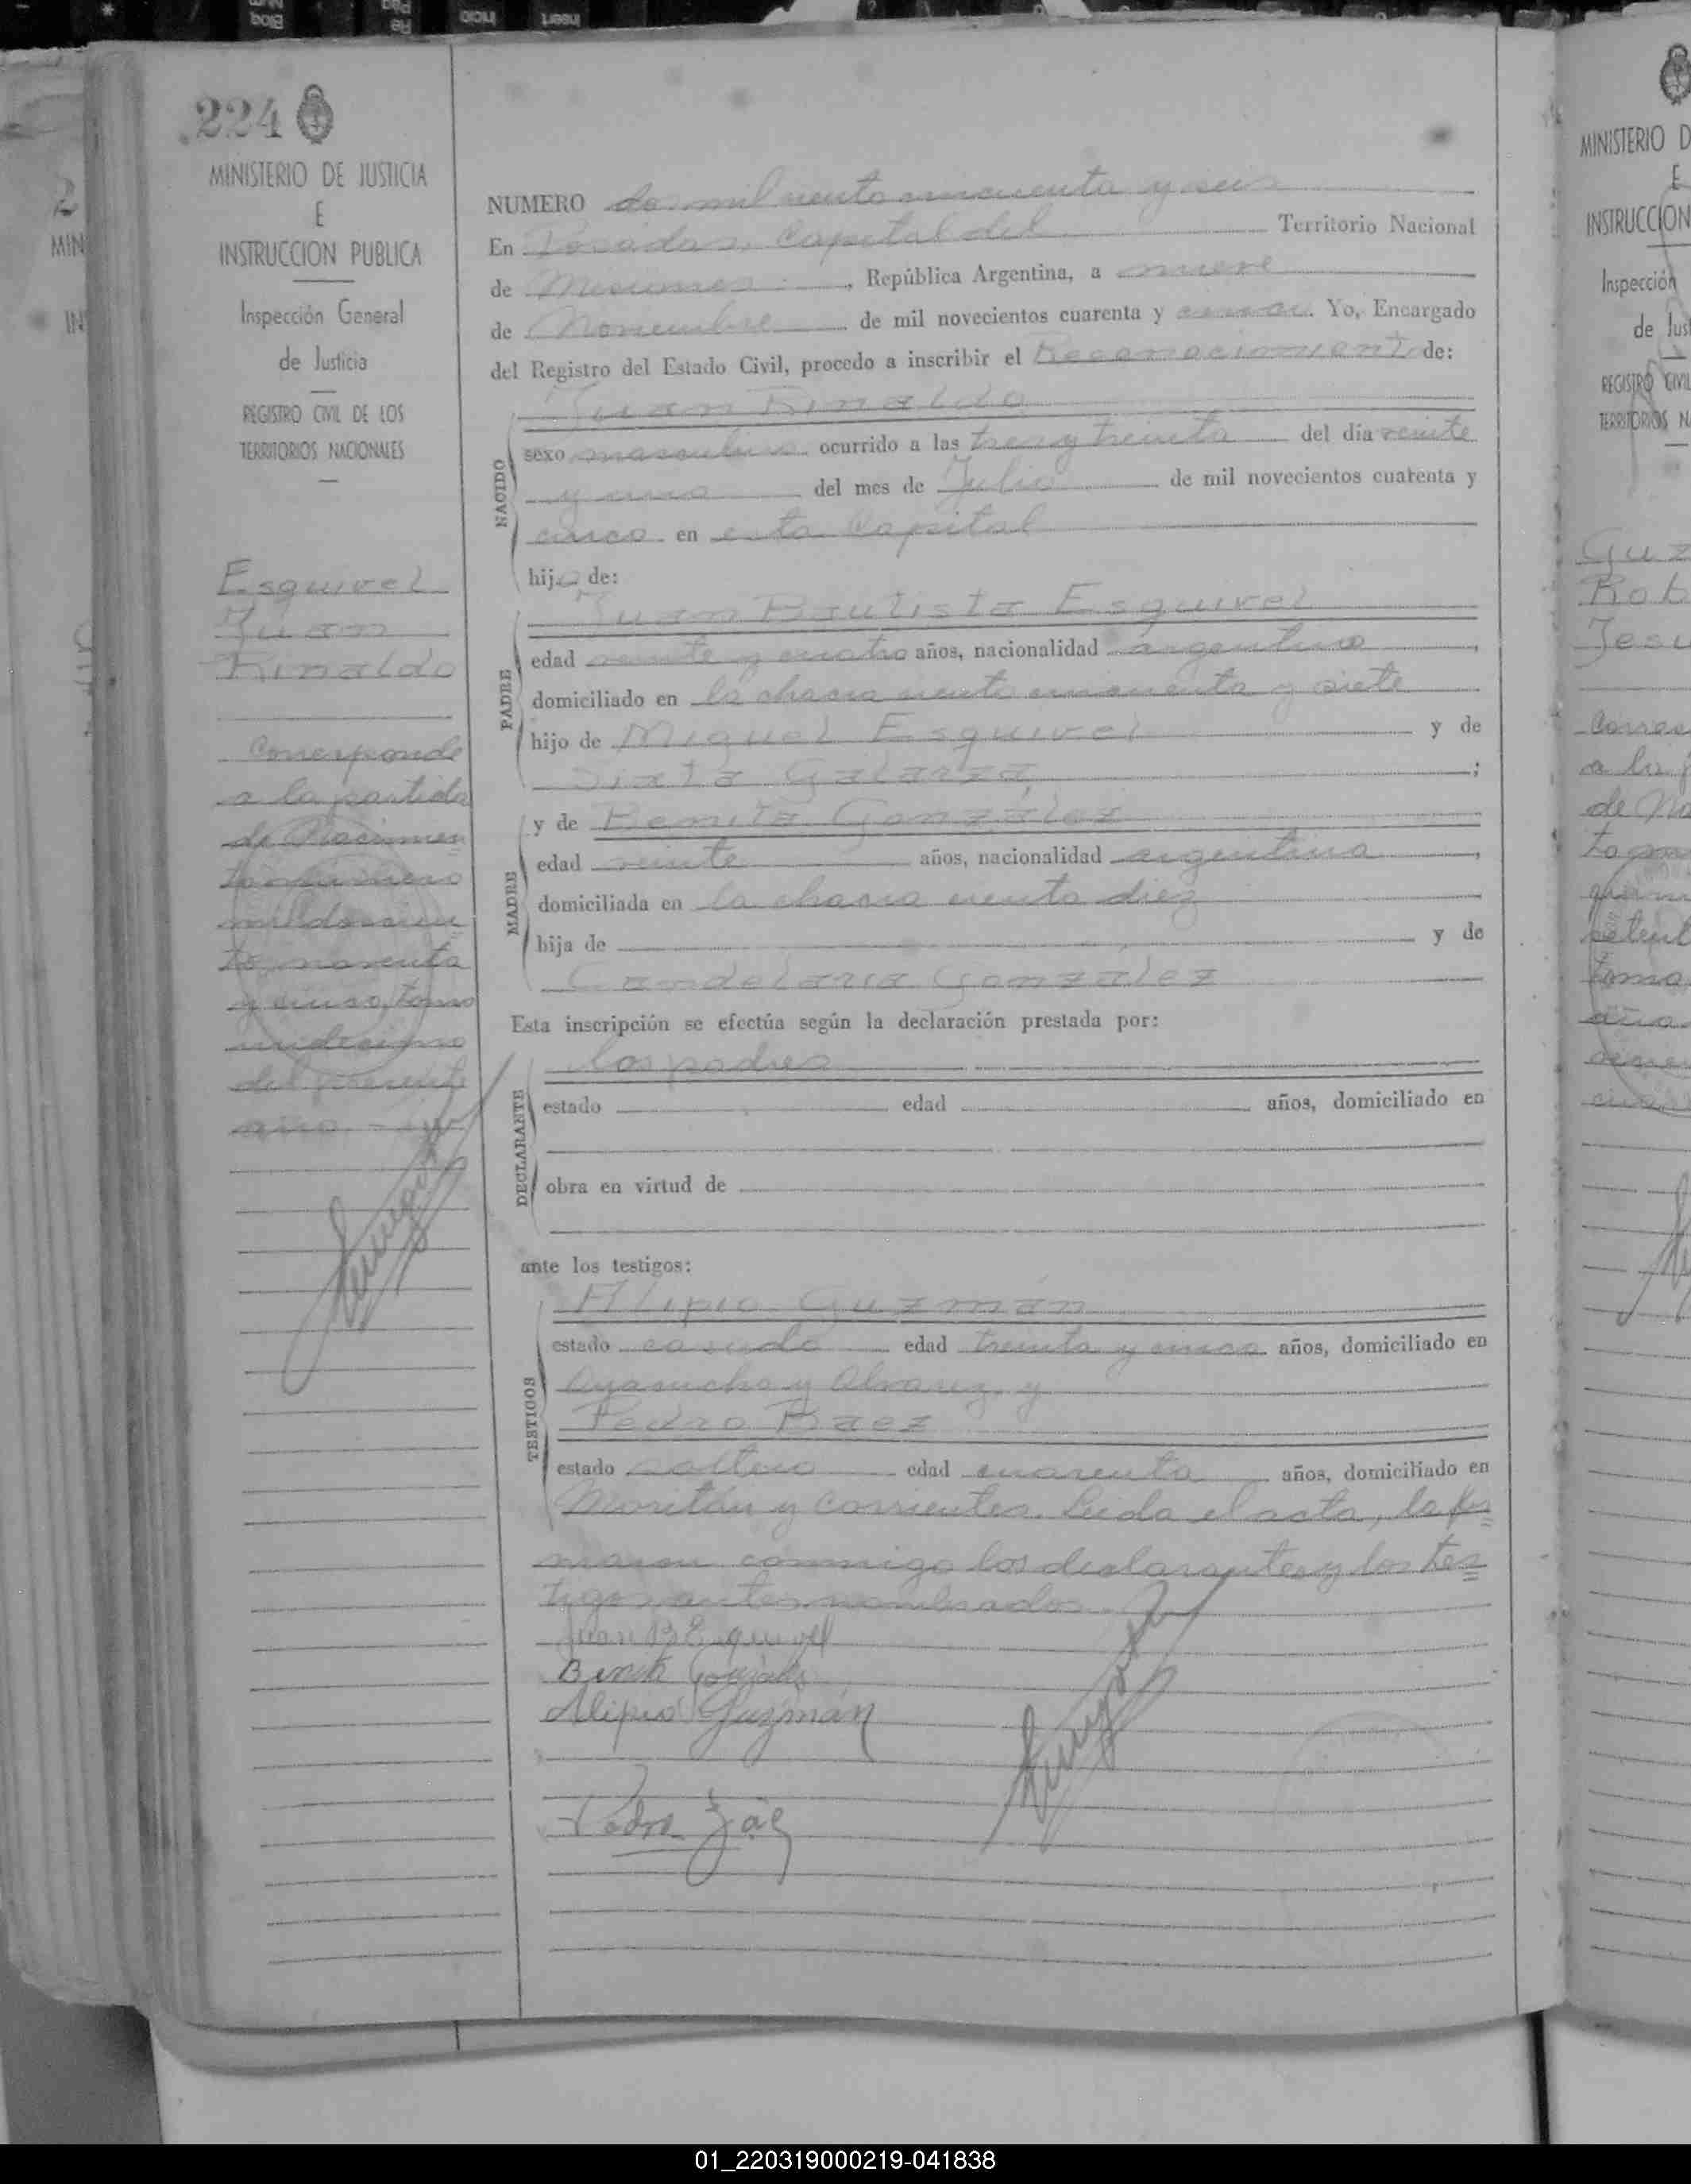 224
MINISTERIO DE JUSTICIA
E
INSTRUCCION PUBLICA
Inspección General
de Justicia
REGISTRO CIVIL DE LOS
TERRITORIOS NACIONALES
Esquivel
Juan
Rinaldo
Corresponde
a la partida
de Nacimien
to número
mil doscien
tos noventa
y cinco, tomo
undécimo
del presente
año.
NUMERO dos mil ciento cincuenta y seis
En Posadas, Capital del Territorio Nacional
de Misiones, República Argentina, a nueve
de Noviembre de mil novecientos cuarenta y cinco. Yo, Encargado
del Registro del Estado Civil, procedo a inscribir el Reconocimiento de:
Juan Rinaldo
NACIDO
sexo masculino ocurrido a las tres y treinta del día veinte
y uno del mes de Julio de mil novecientos cuarenta y
cinco en esta Capital
hijo de:
Juan Bautista Esquivel
PADRE
edad veinte y cuatro años, nacionalidad argentino,
domiciliado en la chacra ciento cincuenta y siete
hijo de Miguel Esquivel y de
Sixta Galarza;
y de Benita González
MADRE
edad veinte años, nacionalidad argentina,
domiciliada en la chacra ciento diez
hija de y de
Candelaria González
Esta inscripción se efectúa según la declaración prestada por:
los padres
DECLARANTE
estado edad años, domiciliado en
obra en virtud de
ante los testigos:
Alipio Guzmán
TESTIGOS
estado casado edad treinta y cinco años, domiciliado en
Ayacucho y Alvarez, y
Pedro Baez
estado soltero edad cuarenta años, domiciliado en
Moritán y Corrientes. Leída el acta, la fir=
maron conmigo los declarantes y los tes=
tigos antes nombrados.
Juan B Esquivel
Benita González
Alipio Guzmán
Pedro Báez
MINISTERIO D
E
INSTRUCCION
Inspección
de Just
REGISTRO CIVIL
TERRITORIOS NA
Guz
Rob
Jesu
Corres
a la p
de Na
01_220319000219-041838